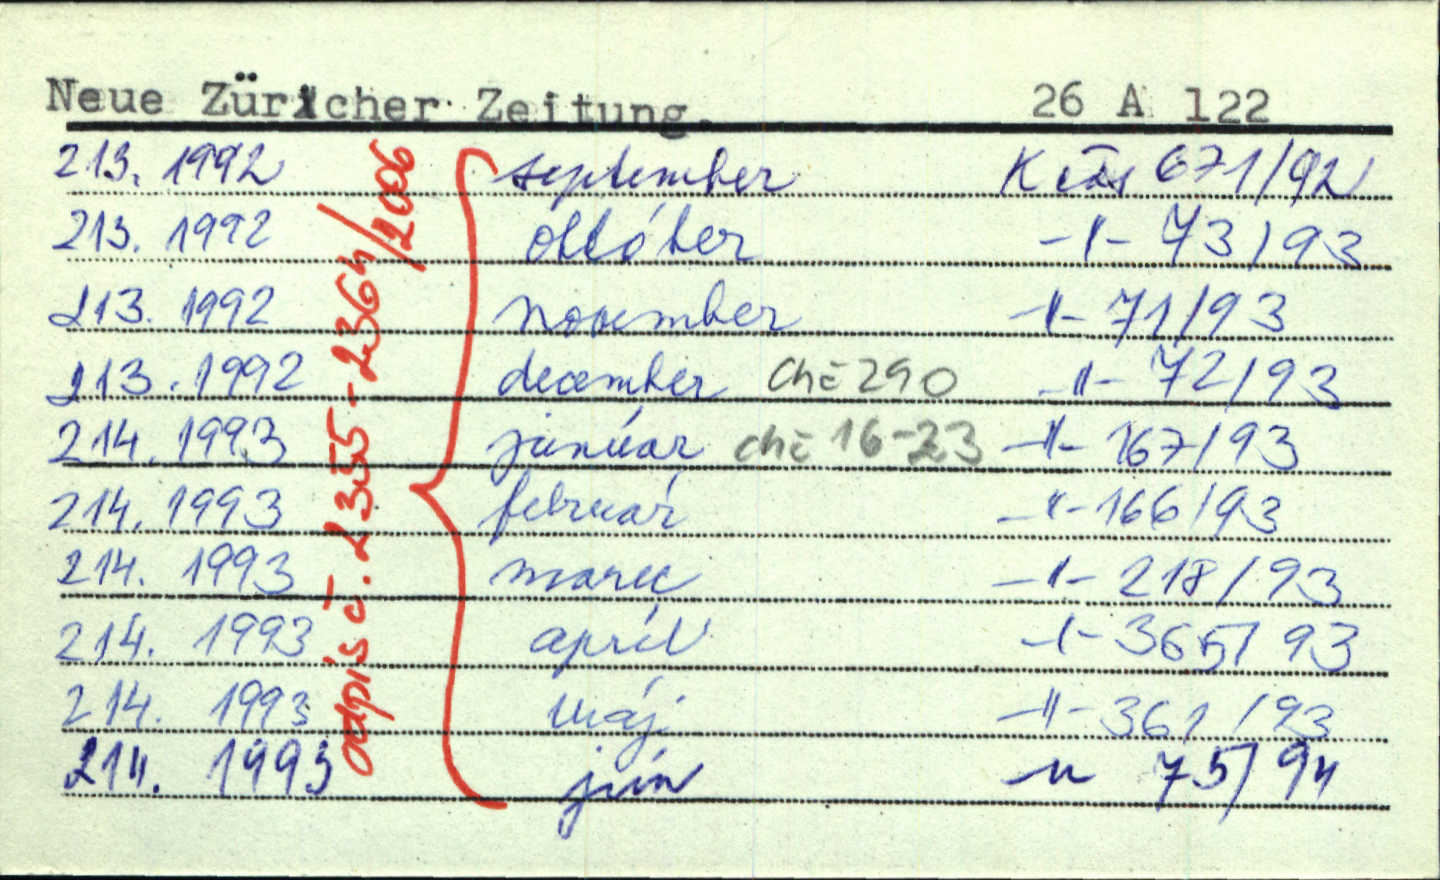 Neue Züricher Zeitung. 26 A 122
213. 1992 september K 671/92
213. 1992 október -"- 73/93
213. 1992 november -"- 71/93
213. 1992 december Chč 290 -"- 72/93
214. 1993 január chč 16-23 -"- 167/93
214. 1993 február -"- 166/93
214. 1993 marec -"- 218/93
214. 1993 apríl -"- 365/93
214. 1993 máj -"- 361/93
214. 1993 jún -"- 75/94
odpis č. 2355-2364/2006